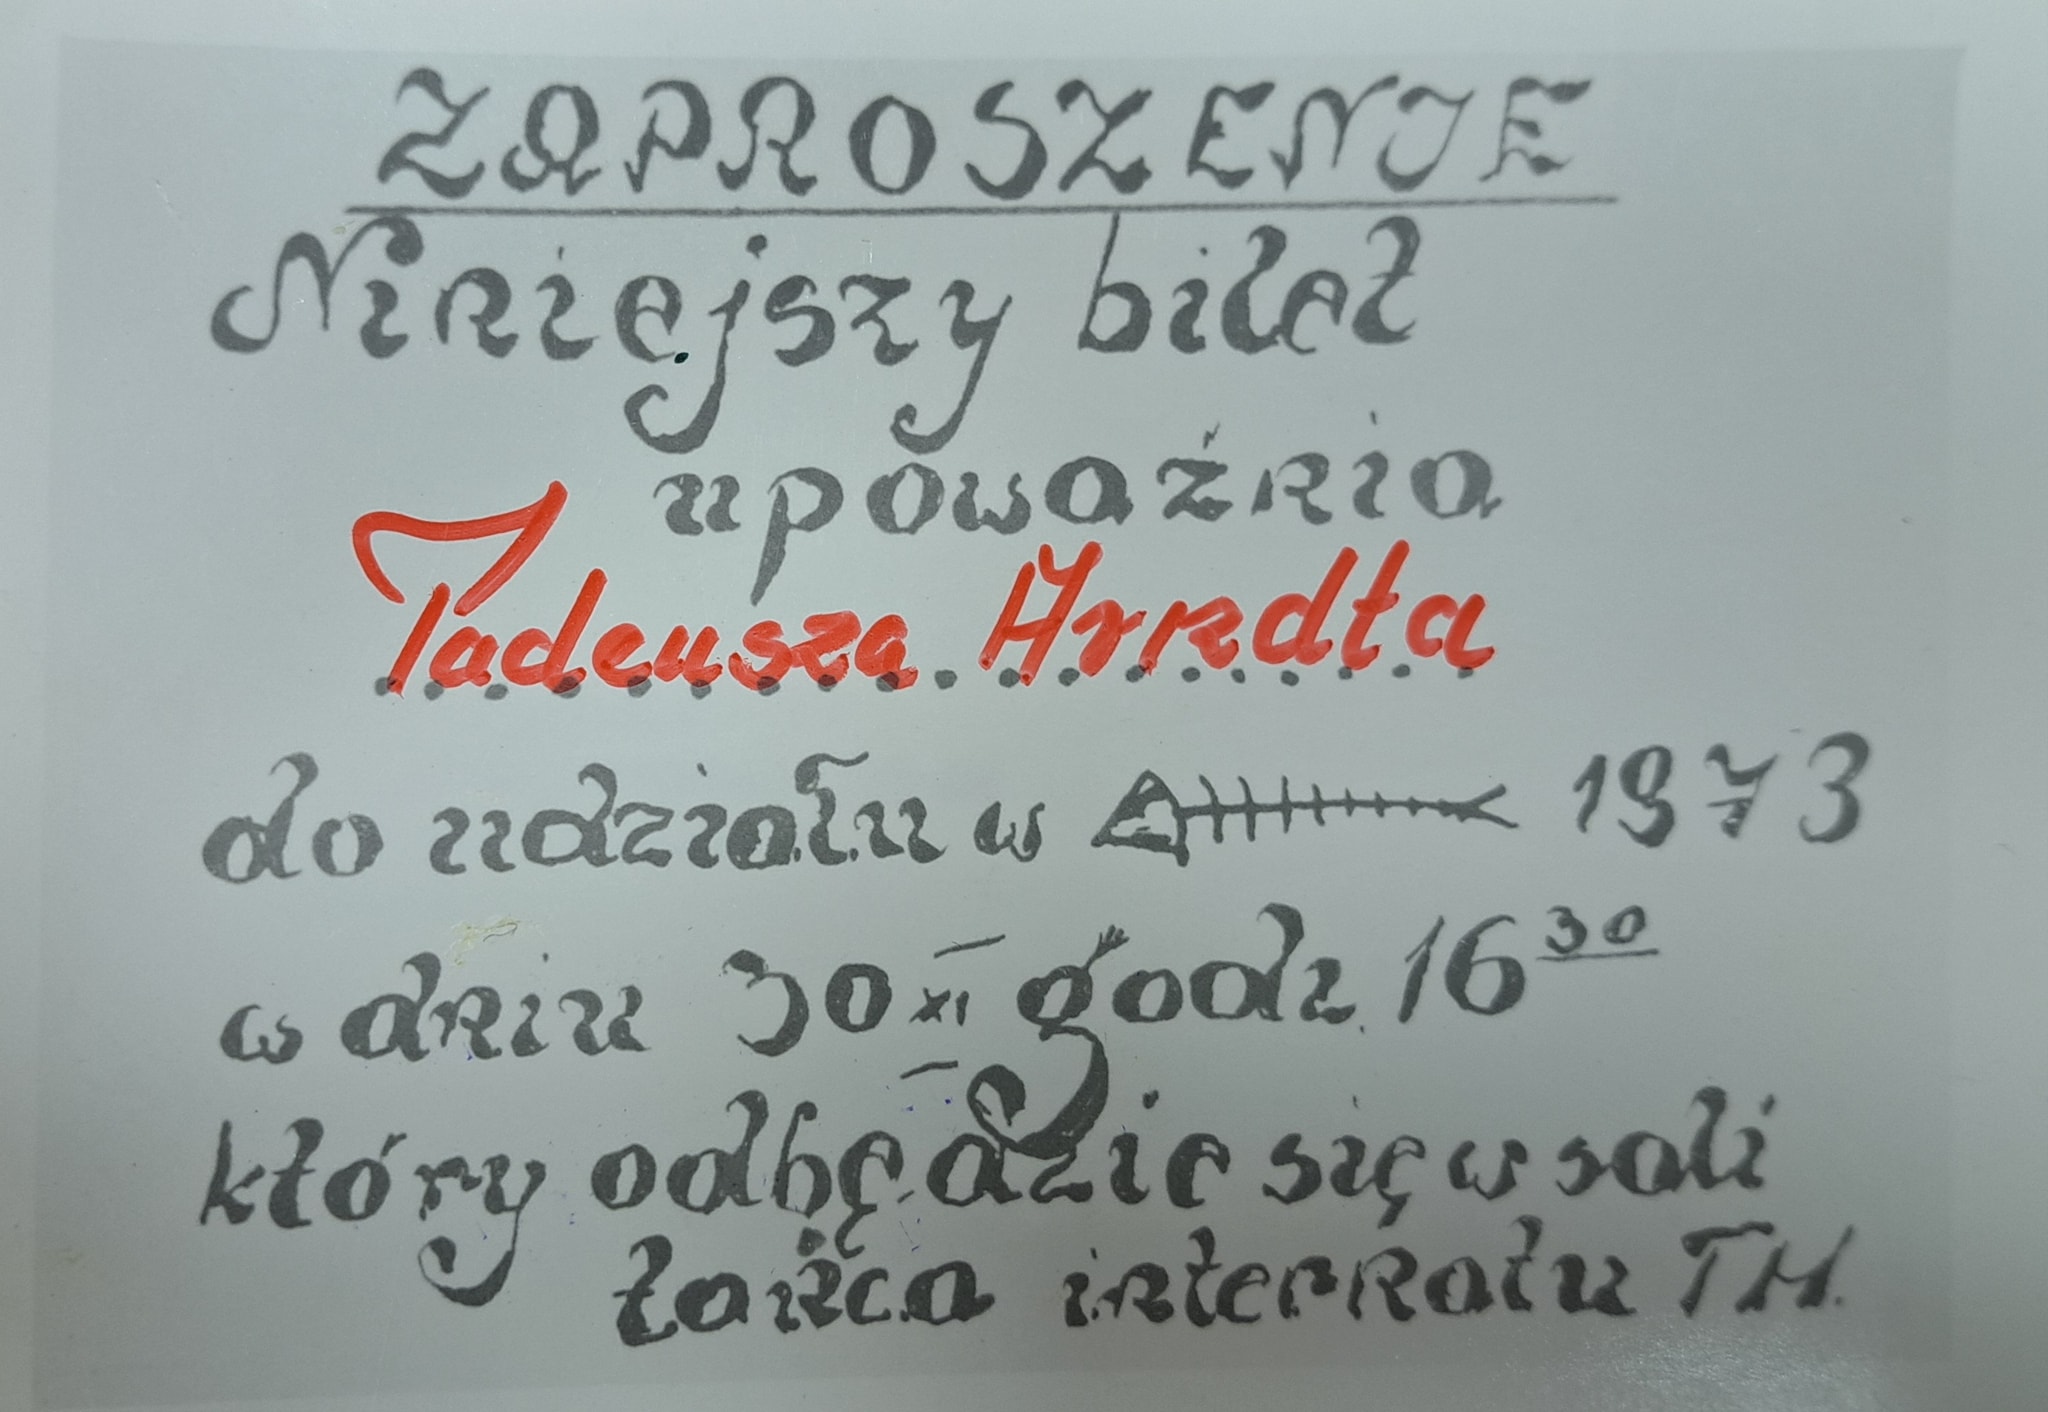 ZAPROSZENIE
Niniejszy bilet
upoważnia
Tadeusza Arndta
do udziału w 1973
w dniu 30 XI godz. 16 30
który odbędzie się w sali
tańca internatu TH.